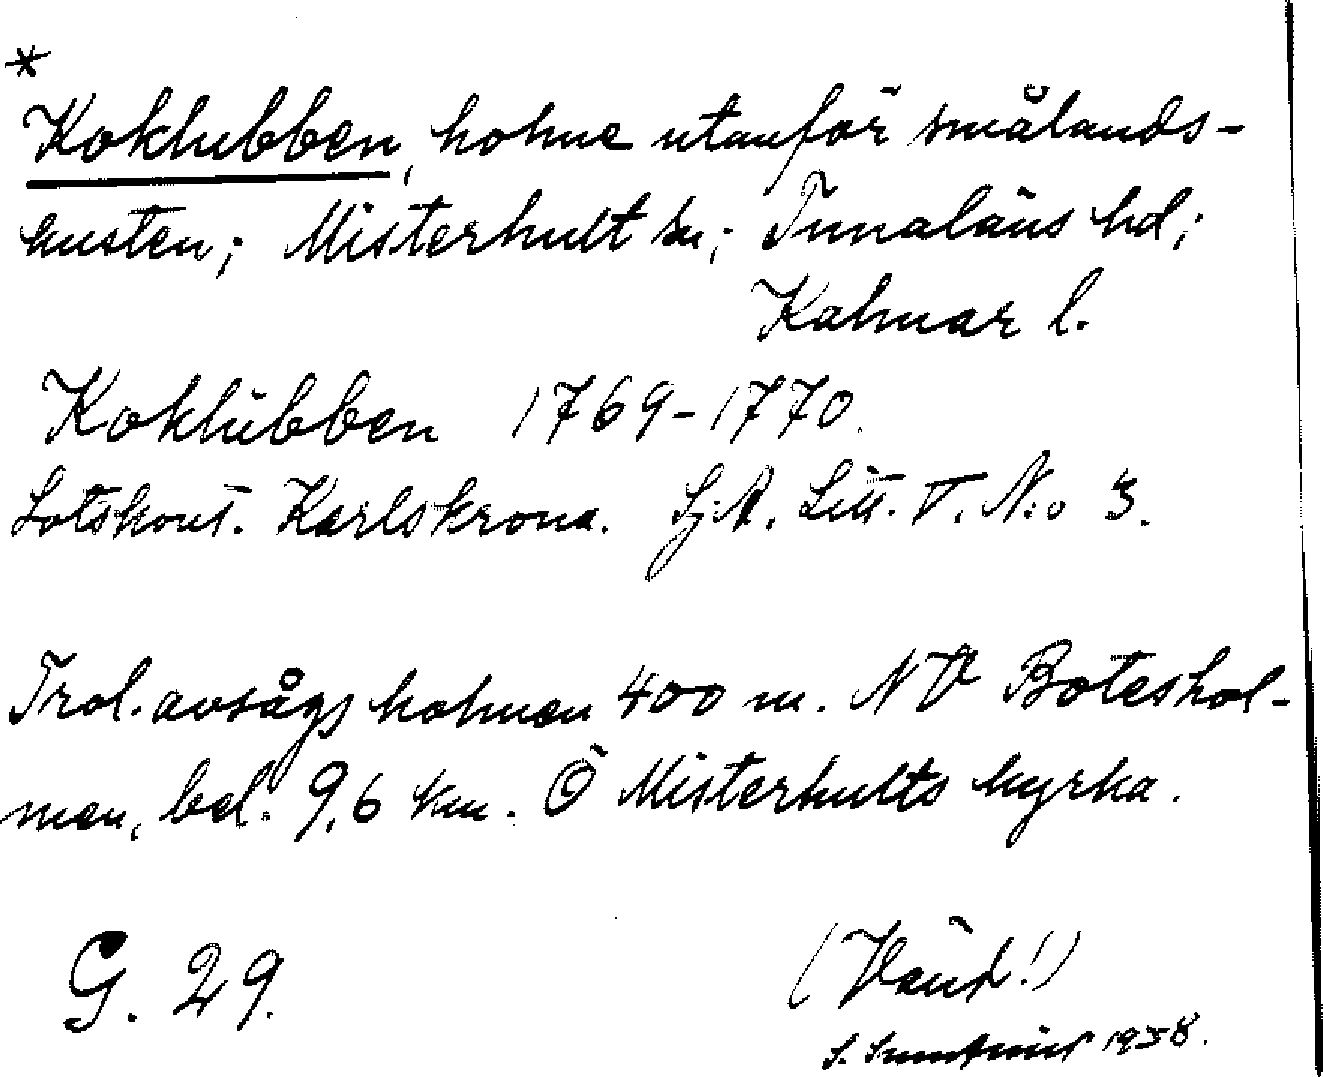 *
Koklubben, holme utanför smålands-
kusten; Misterhult sn; Tunaläns hd;
Kalmar l.
Koklübben 1769-1770.
Lotskont. Karlskrona. SjA. Litt. V. N:o 3.
Trol. avsågs holmen 400 m. NV Boteshol-
men, bel. 9,6 km. Ö Misterhults kyrka.
G. 29.
(Vänd!)
S. 1938.